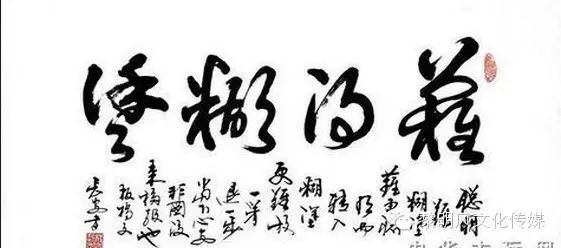 難得糊塗
聪明
難
糊塗
難由聪
明而
转入
糊塗
更難放
一著
退一步
当下心安
非图後
来福报也
板橋文
文化传媒